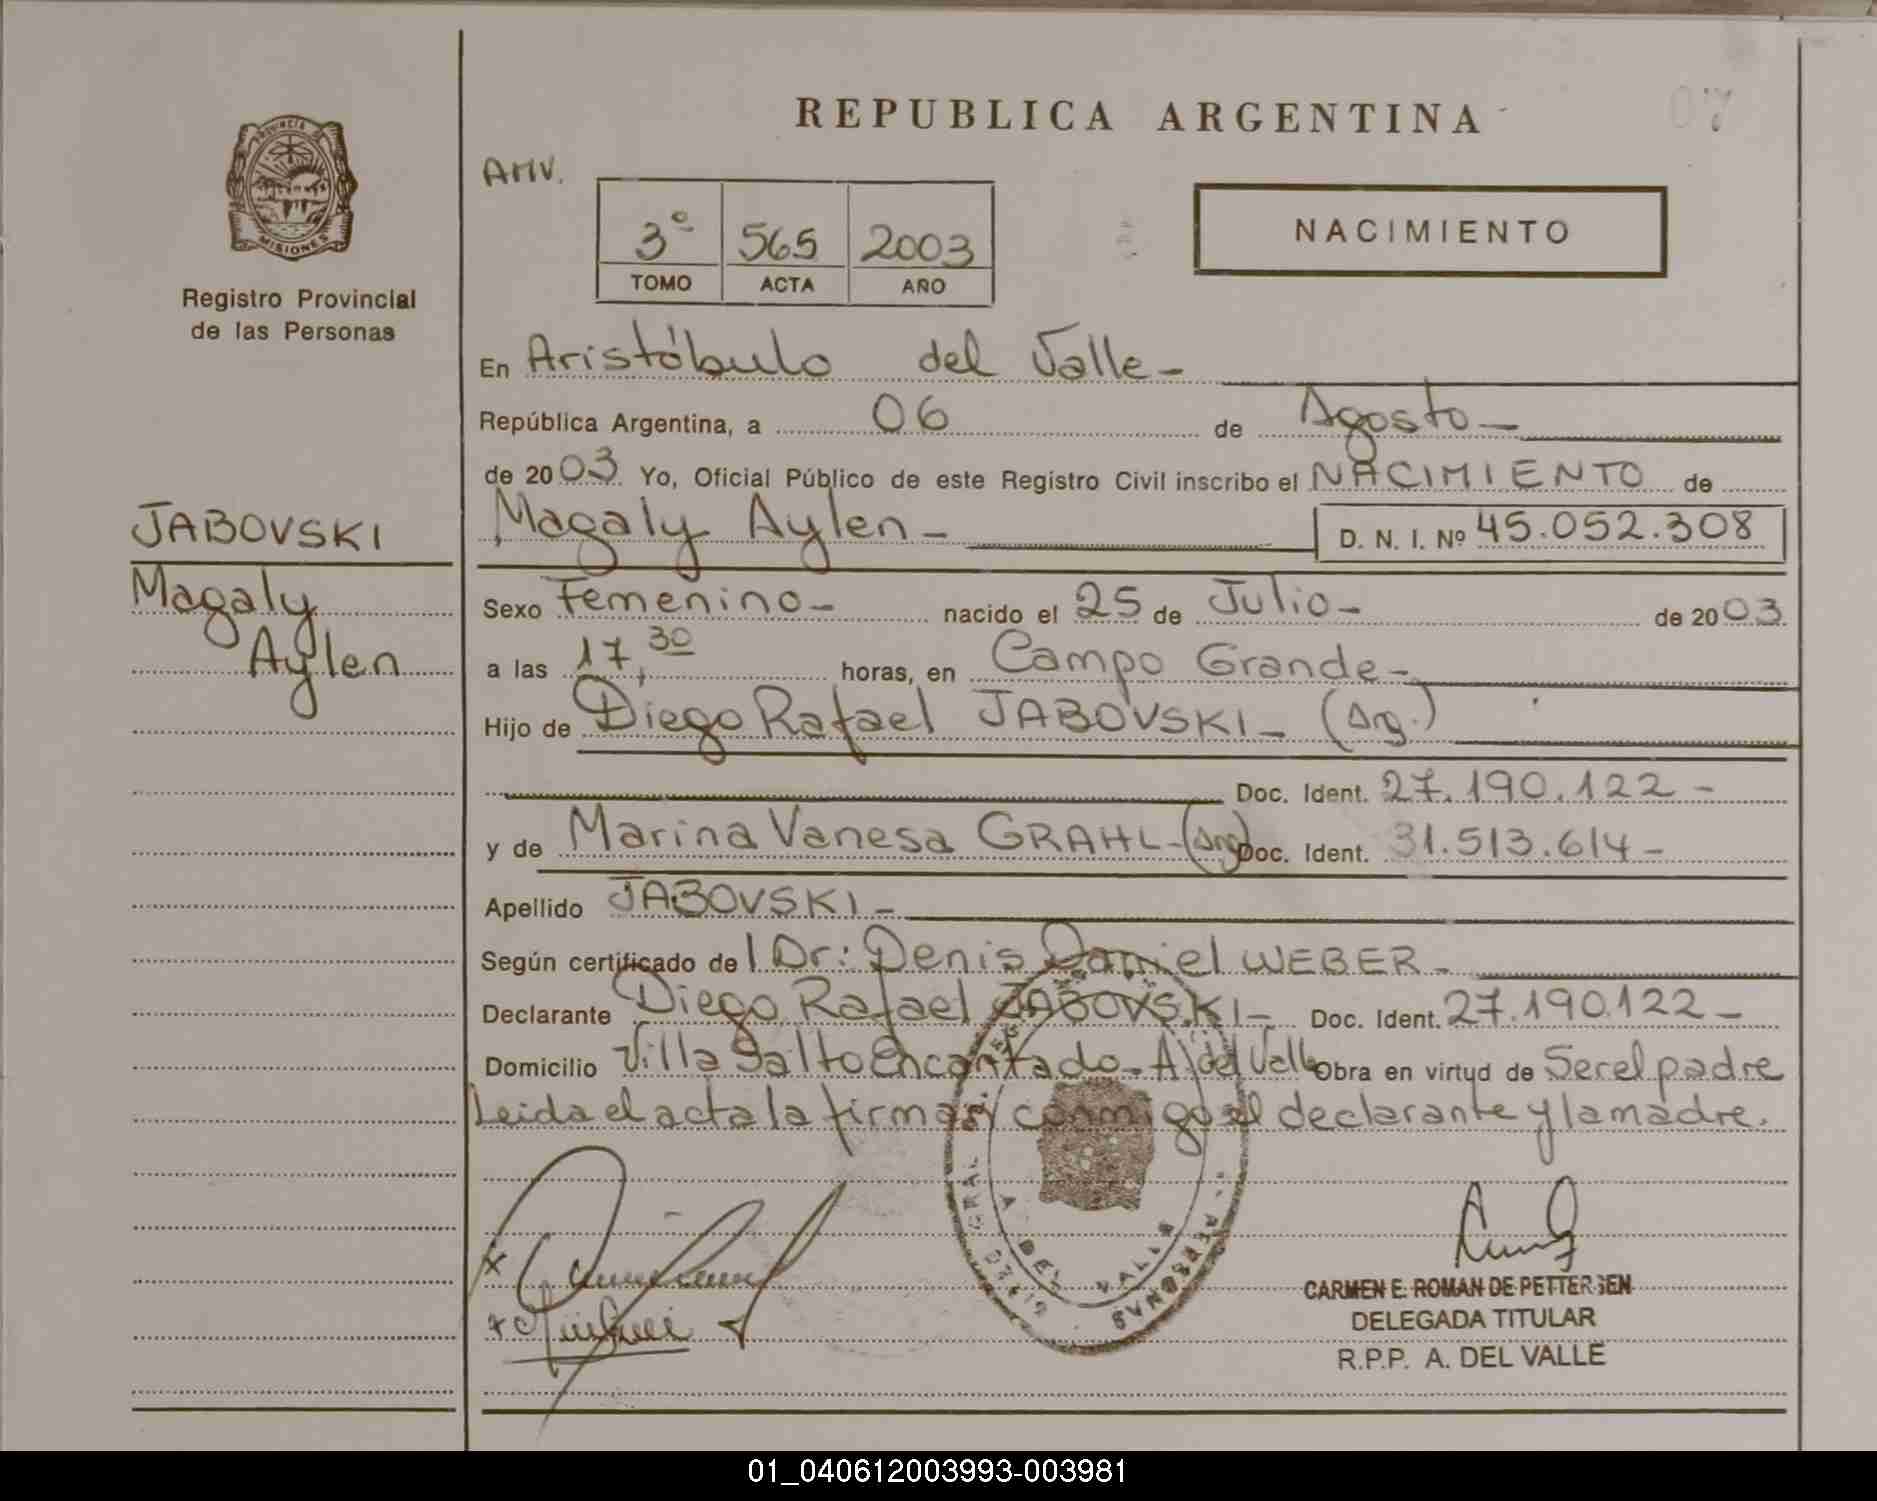 REPUBLICA ARGENTINA
07
PROVINCIA DE
MISIONES
Registro Provincial
de las Personas
AMV.
3º 565 2003
TOMO ACTA AÑO
NACIMIENTO
En Aristóbulo del Valle -
República Argentina, a 06 de Agosto -
de 2003 Yo, Oficial Público de este Registro Civil inscribo el NACIMIENTO de
JABOVSKI
Magaly
Aylen
Magaly Aylen - D. N. I. Nº 45.052.308
Sexo Femenino - nacido el 25 de Julio - de 2003
a las 17,30 horas, en Campo Grande -
Hijo de Diego Rafael JABOVSKI - (Arg.)
Doc. Ident. 27.190.122 -
y de Marina Vanesa GRAHL - (Arg) Doc. Ident. 31.513.614 -
Apellido JABOVSKI -
Según certificado del Dr: Denis Daniel WEBER -
Declarante Diego Rafael JABOVSKI - Doc. Ident. 27.190.122 -
Domicilio Villa Salto Encantado - A) del Valle Obra en virtud de Ser el padre
Leida el acta la firman conmigo el declarante y la madre.
GRAL. PERSONAS
A DEL VALLE
CARMEN E. ROMAN DE PETTERSEN
DELEGADA TITULAR
R.P.P. A. DEL VALLE
01_040612003993-003981